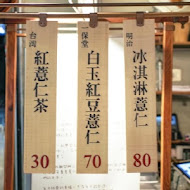 台灣
紅薏仁茶
30
保堂
白玉紅豆薏仁
70
明治
冰淇淋薏仁
80